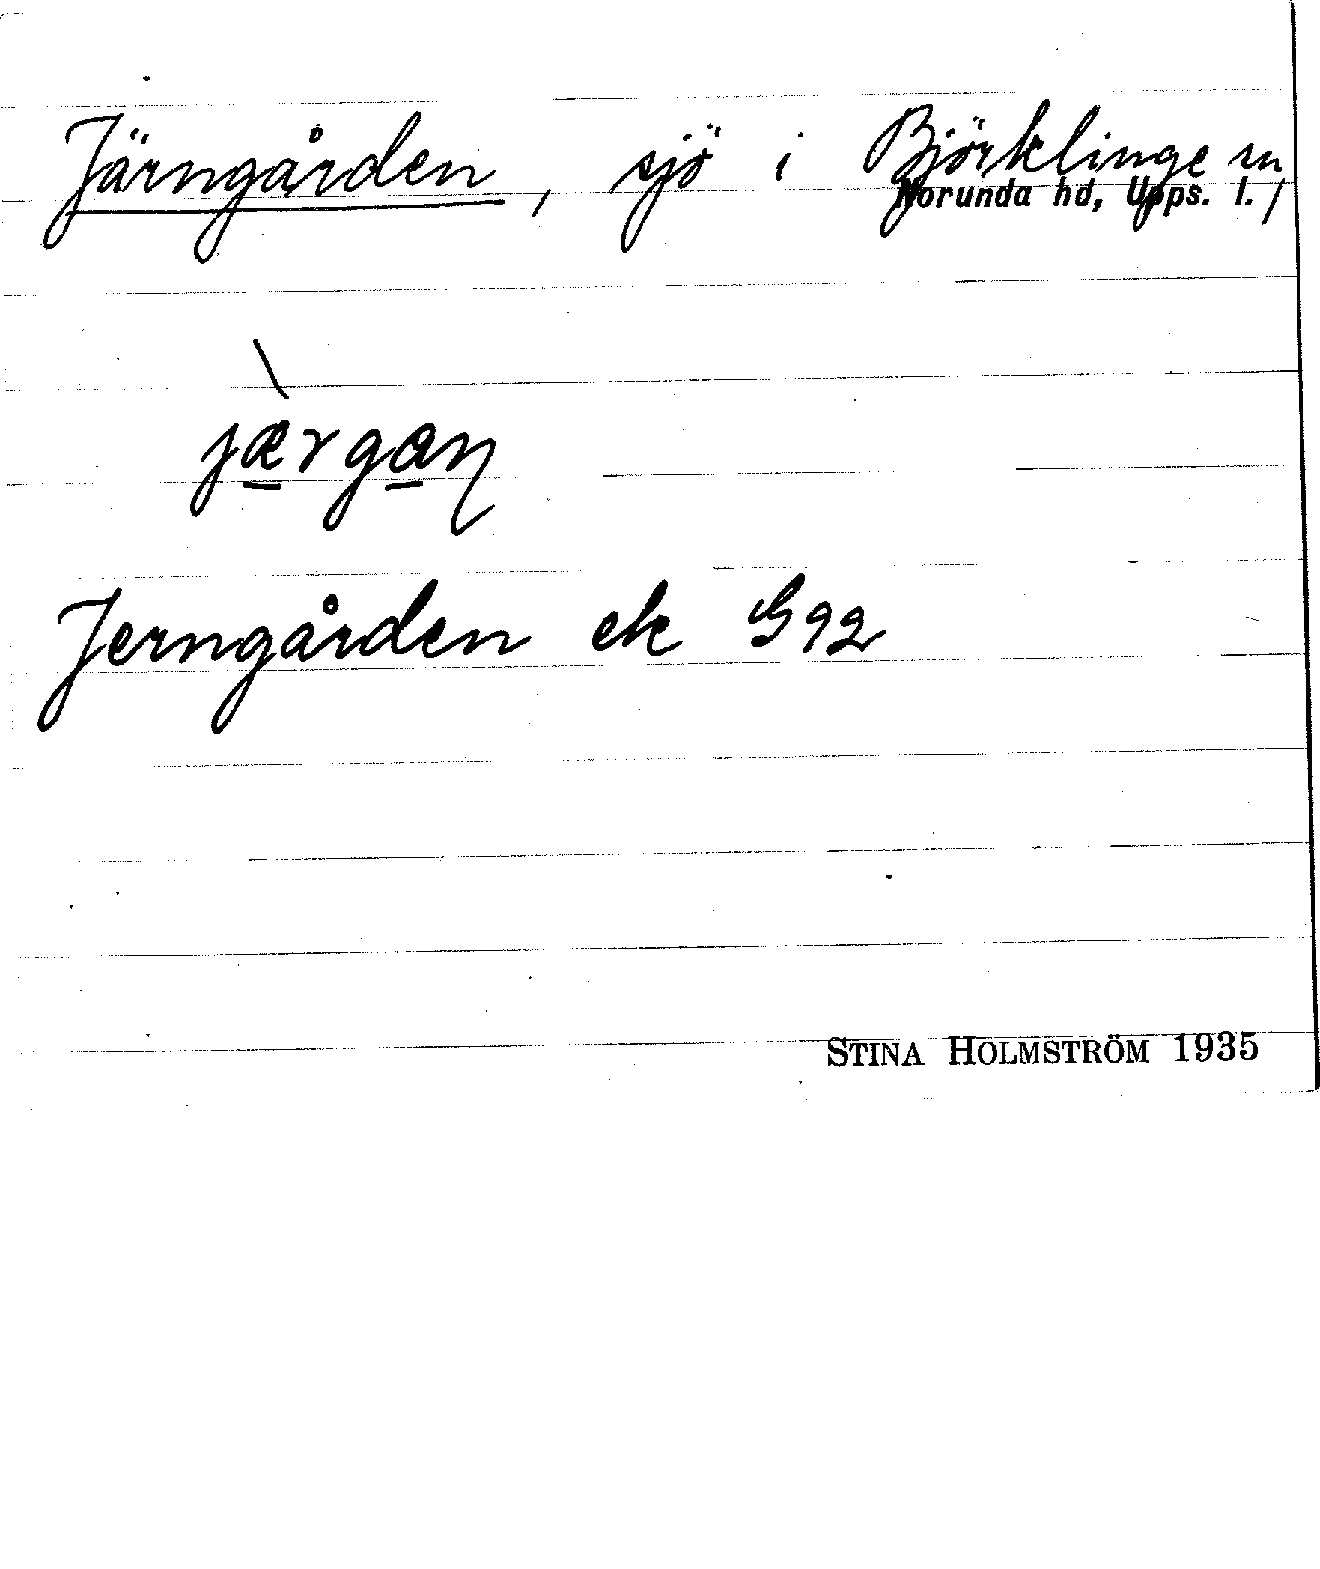 Järngården, sjö i Björklinge sn
Norunda hd, Upps. l.
\
jærgaɳ
Jerngården ek G 92
STINA HOLMSTRÖM 1935